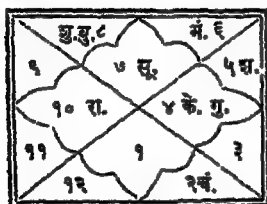 शु. बु. ८ मं. ६
९ ७ सू. ५ श.
१० रा. ४ के. गु.
११ १ ३
१२ २ चं.